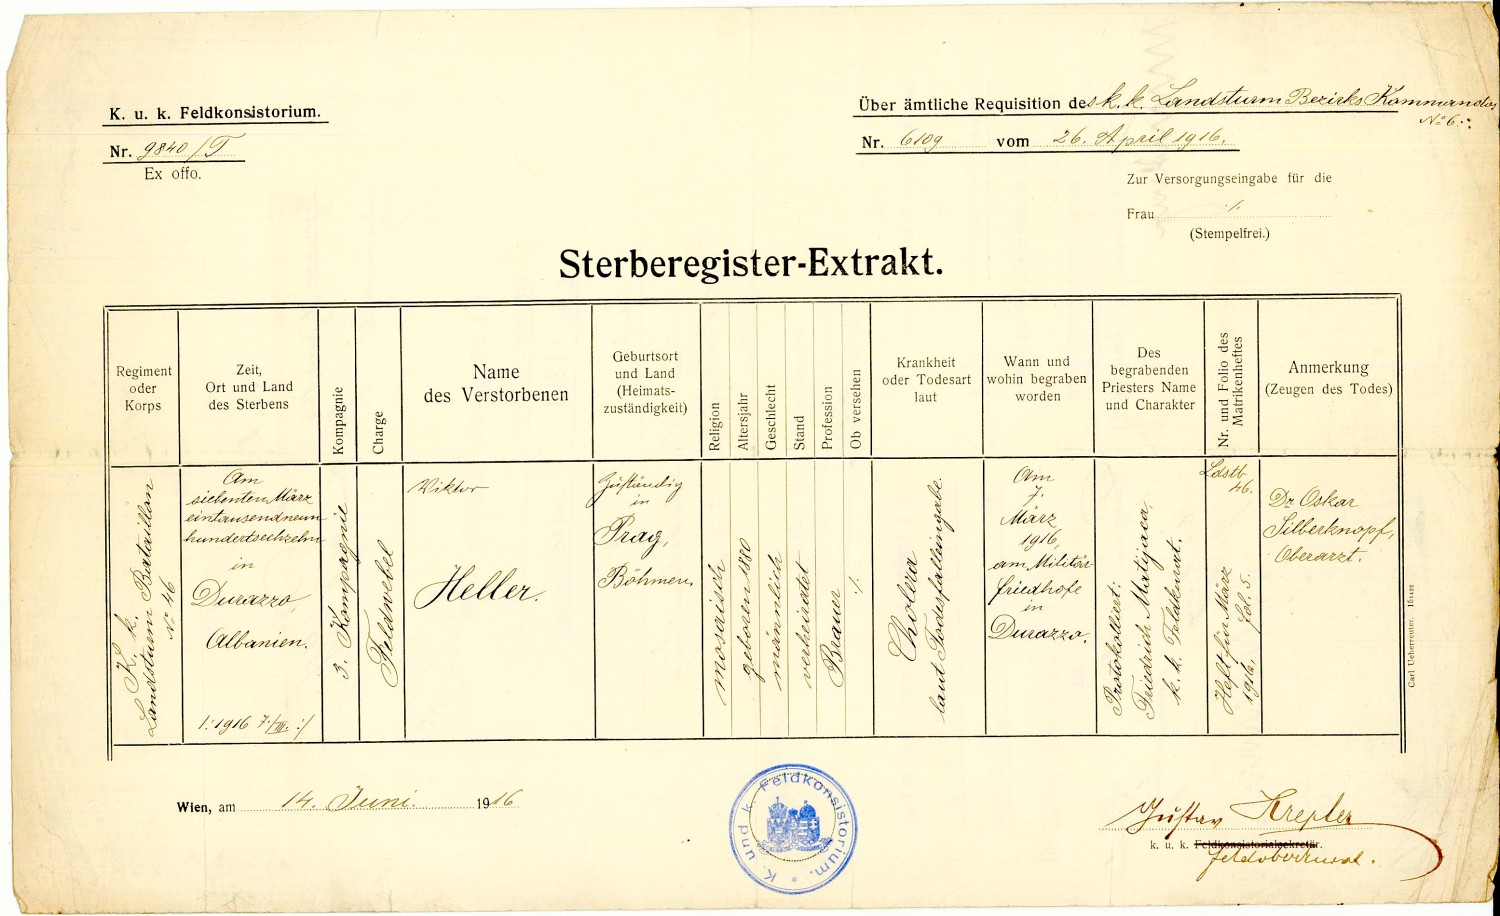 K. u. k. Feldkonsistorium.
Nr. 9840/T
Ex offo.
Über ämtliche Requisition des k. k. Landsturm Bezirks Kommandos
No 6.
Nr. 6109 vom 26. April 1916.
Zur Versorgungseingabe für die
Frau ./.
(Stempelfrei.)
Sterberegister-Extrakt.
Regiment
oder
Korps
Zeit,
Ort und Land
des Sterbens
Kompagnie
Charge
Name
des Verstorbenen
Geburtsort
und Land
(Heimats-
zuständigkeit)
Religion
Altersjahr
Geschlecht
Stand
Profession
Ob versehen
Krankheit
oder Todesart
laut
Wann und
wohin begraben
worden
Des
begrabenden
Priesters Name
und Charakter
Nr. und Folio des
Matrikenheftes
Anmerkung
(Zeugen des Todes)
K. k.
Landsturm Bataillon
No 46
Am
siebenten März
eintausendneun
hundertsechzehn
in
Durazzo,
Albanien.
/: 1916 7./III. :/
3. Kompagnie
Feldwebel
Viktor
Heller.
Zuständig
in
Prag,
Böhmen.
mosaisch
geboren 1880
männlich
verheiratet
Brauer
./.
Cholera
laut Todesfalleingabe.
Am
7.
März
1916,
am Militär-
friedhofe
in
Durazzo.
Protokolliert:
Friedrich Matijaca,
k. k. Feldkurat.
Ldstb
46.
Heft für März
1916, fol. 5.
Dr. Oskar
Silberknopf,
Oberarzt.
Carl Ueberreuter.
Wien, am 14. Juni 1916
K. und k. Feldkonsistorium. *
Gustav
k. u. k. Feldkonsistorialsekretär.
Feldoberkurat.